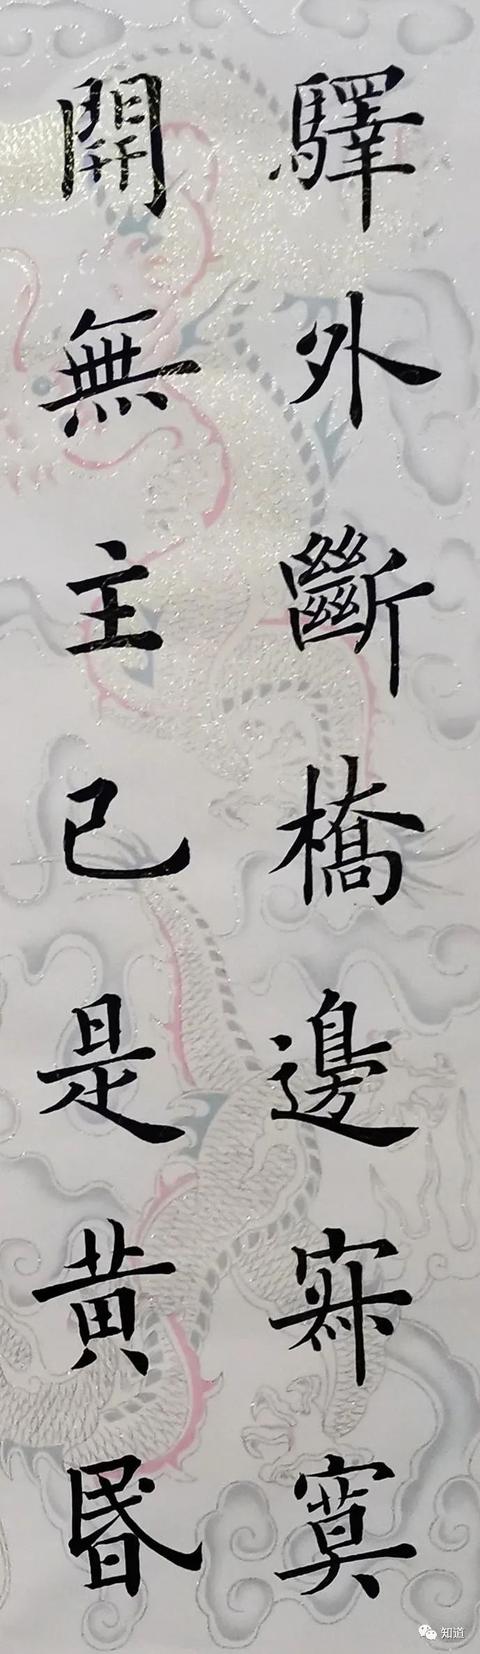 驛外斷橋邊寂寞
開無主已是黃昬
知道